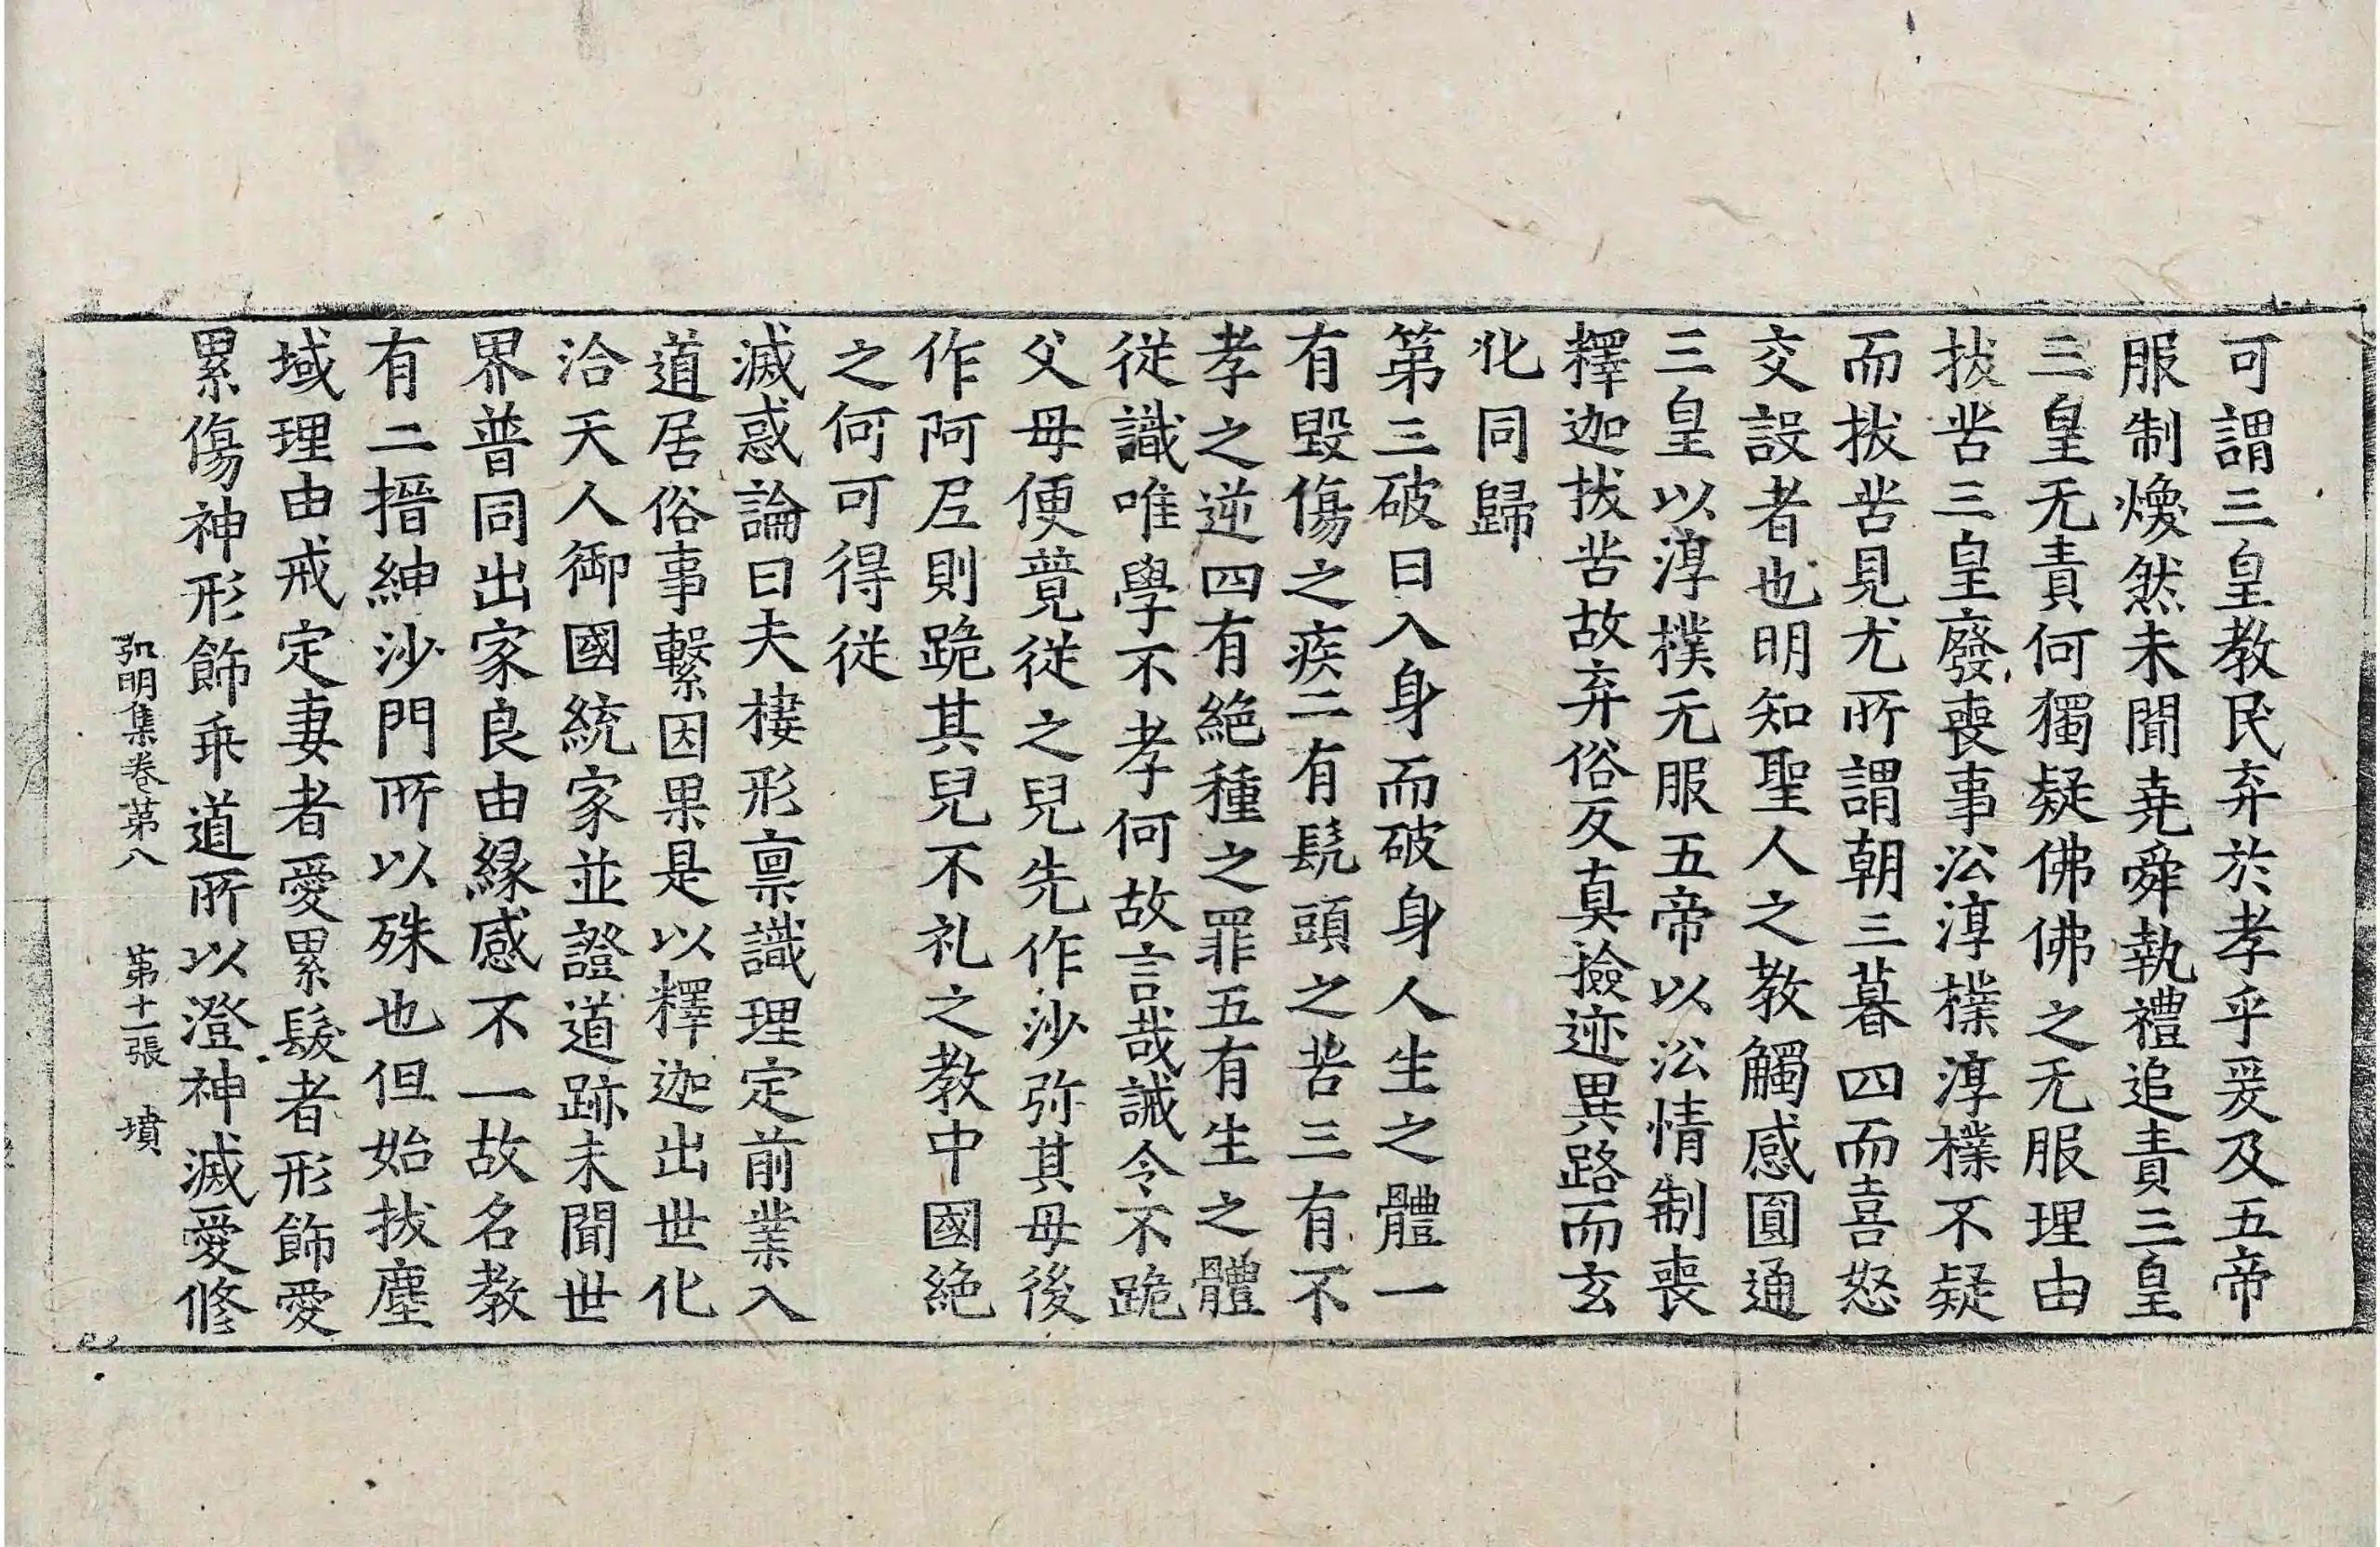 可謂三皇教民弃於孝乎爰及五帝
服制煥然未聞堯舜執禮追責三皇
三皇无責何獨疑佛佛之无服理由
拔苦三皇廢喪事㳂淳樸淳樸不疑
而拔苦見尤所謂朝三暮四而喜怒
交設者也明知聖人之教觸感圓通
三皇以淳樸无服五帝以㳂情制喪
釋迦拔苦故弃俗反真撿迹異路而玄
化同歸
第三破曰入身而破身人生之體一
有毀傷之疾二有髡頭之苦三有不
孝之逆四有絕種之罪五有生之體
從識唯學不孝何故言哉誡令不跪
父母便競從之兒先作沙弥其母後
作阿𡰱則跪其兒不礼之教中國絕
之何可得從
滅惑論曰夫棲形稟識理定前業入
道居俗事繫因果是以釋迦出世化
洽天人御國統家並證道跡未聞世
界普同出家良由縁感不一故名教
有二搢紳沙門所以殊也但始拔塵
域理由戒定妻者愛累髮者形飾愛
累傷神形飾乖道所以澄神滅愛修
弘明集卷第八　第十一張　墳